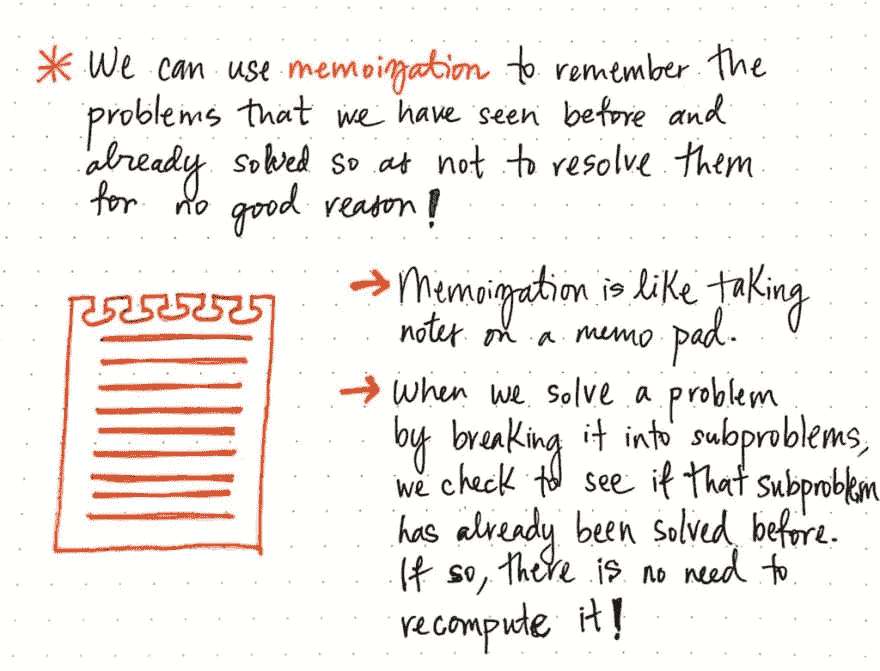 * We can use memoization to remember the
problems that we have seen before and
already solved so as not to resolve them
for no good reason!
→ Memoization is like taking
notes on a memo pad.
→ When we solve a problem
by breaking it into subproblems,
we check to see if that subproblem
has already been solved before.
If so, there is no need to
recompute it!